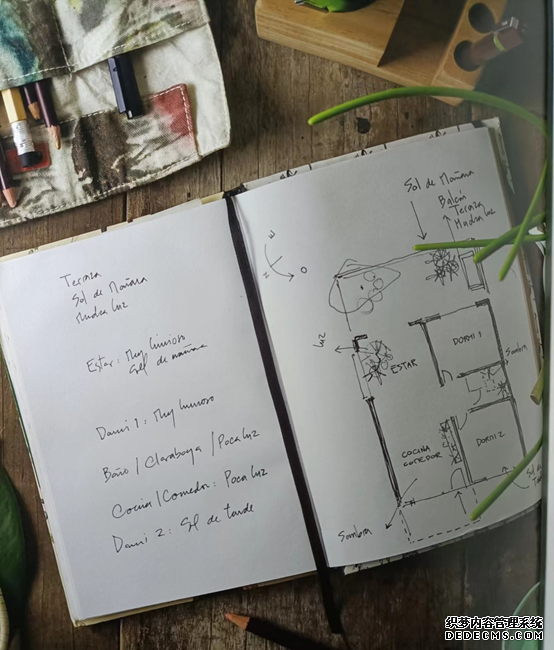 Terraza
Sol de Mañana
Mucha luz
Estar: Muy luminoso
Sol de mañana
Dormi 1: Muy luminoso
Baño / Claraboya / Poca luz
Cocina / Comedor: Poca luz
Dormi 2: Sol de tarde
Sol de Mañana
Balcón
Terraza
Mucha luz
N
O
luz
ESTAR
DORMI 1
Sombra
COCINA
COMEDOR
DORMI 2
Sombra
织梦内容管理系统
DEDECMS.COM